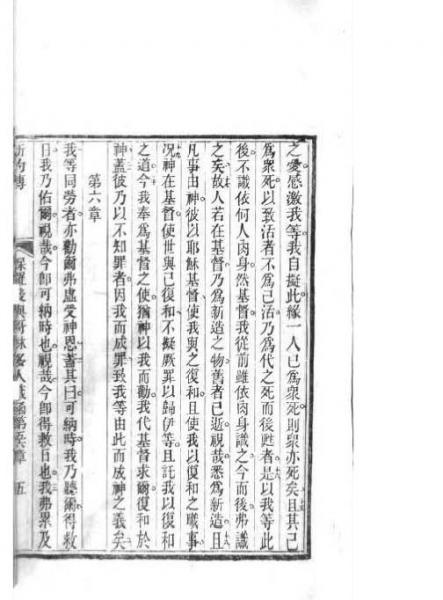 之愛感激我等我自擬此緣一人已爲衆死則衆亦死矣且其已
爲衆死以致活者不爲己活乃爲代之死而後甦者是以我等此
後不識依何人肉身然基督我從前雖依肉身識之今而後弗識
之矣故人若在基督乃爲新造之物舊者已逝視哉悉爲新造且
凡事由神彼以耶穌基督使我與之復和且使我以復和之職事
况神在基督使世與己復和不擬厥罪以歸伊等且託我以復和
之道今我奉爲基督之使猶神以我而勸我代基督求爾復和於
神蓋彼乃以不知罪者因我而成罪致我等由此而成神之義矣
第六章
我等同勞者亦勸爾弗虛受神恩蓋其曰可納時我乃聽爾得救
日我乃佑爾視哉今卽可納時也視哉今卽得救日也我弗累及
人 章 五